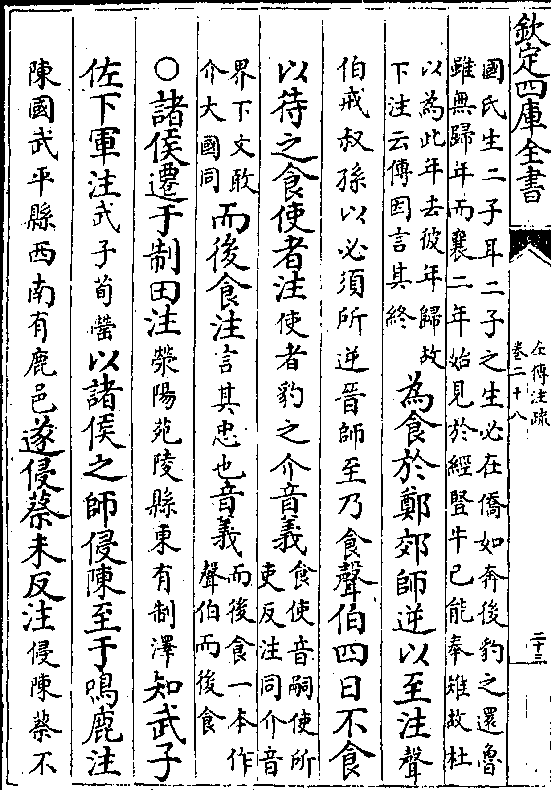 欽定四庫全書
左傳注疏
卷二十八
二十三
國氏生二子耳二子之生必在僑如奔後豹之還魯
雖無歸年而襄二年始見於經豎牛已能奉雉故杜
以為此年去彼年歸故
下注云傳因言其終
為食於鄭郊師逆以至注聲
伯戒叔孫以必須所逆晉師至乃食聲伯四日不食
以待之食使者注使者豹之介音義食使音嗣使所
吏反注同介音
界下文敢
介大國同
而後食注言其忠也音義而後食一本作
聲伯而後食
○諸侯遷于制田注滎陽苑陵縣東有制澤知武子
佐下軍注武子荀罃以諸侯之師侵陳至于鳴鹿注
陳國武平縣西南有鹿邑遂侵蔡未反注侵陳蔡不